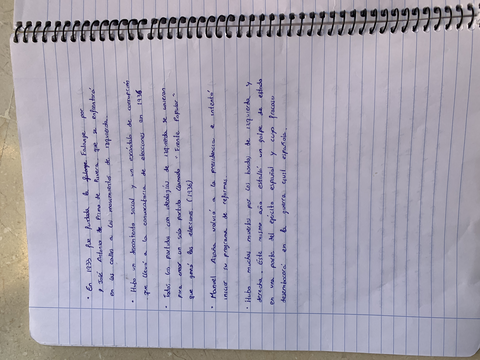 • En 1933 fue fundada la falange Falange por
José Antonio de Primo de Rivera, que se enfrentará
en las calles a los movimientos de izquierda.
• Hubo un descontento social y un escándalo de corrupción
que llevó a la convocatoria de elecciones en 1936
• Todos los partidos con ideologías de izquierda se unieron
para crear un solo partido llamado "Frente Popular"
que ganó las elecciones. (1936)
• Manuel Azaña volvió a la presidencia e intentó
iniciar su programa de reformas.
• Hubo muchas muertes por los bandos de izquierda y
derecha. Este mismo año estalló un golpe de estado
en una parte del ejército español y cuyo fracaso
desembocará en la guerra civil española.